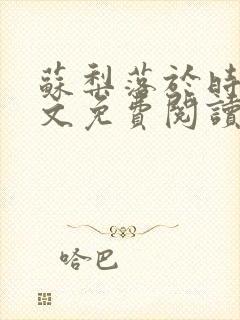 蘇梨落於時
文免費閱讀
哈巴